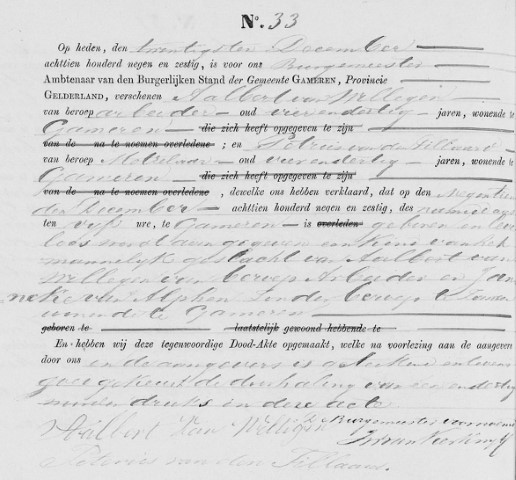 N°. 33
Op heden, den twintigsten December
achttien honderd negen en zestig, is voor ons Burgemeester
Ambtenaar van den Burgerlijken Stand der Gemeente GAMEREN, Provincie
GELDERLAND, verschenen Aalbert van Wellegen
van beroep arbeider oud vierendertig jaren, wonende te
Gameren die zich heeft opgegeven te zijn
van de na te noemen overledene; en Petrus van den Tillaard
van beroep Metselaar oud vierendertig jaren, wonende te
Gameren die zich heeft opgegeven te zijn
van de na te noemen overledene, dewelke ons hebben verklaard, dat op den Negentien
den December achttien honderd negen en zestig, des namiddags
ten vijf ure, te Gameren is overleden geboren en leven
loos wordt aangegeven een Kind van het
mannelijk geslacht van Aalbert van
Wellegen van beroep Arbeider en Jan
neke van Alphen zonder beroep te zamen
wonende te Gameren
geboren te laatstelijk gewoond hebbende te
En hebben wij deze tegenwoordige Dood-Akte opgemaakt, welke na voorlezing aan de aangevers
door ons en de aangevers is geteekend en tevens
goedgekeurd de doorhaling van een en dertig
woorden druks in deze acte
Aalbert van Wellegen De Burgemeester voornoemd
Petrus van den Tillaard